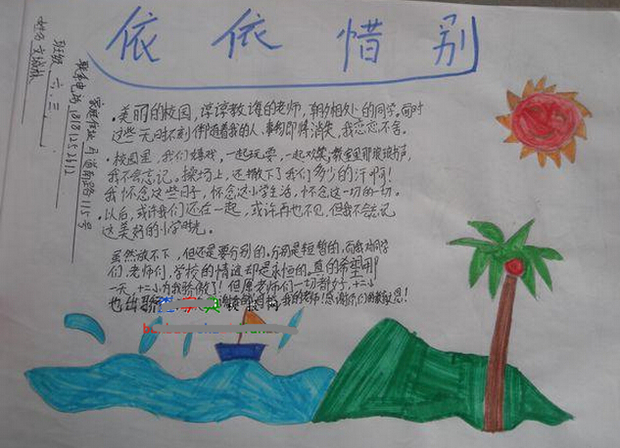 依依惜别
姓名
班级 六.三
联系电话
家庭住址 115号
美丽的校园，谆谆教诲的老师，朝夕相处的同学，同时
这些无时不刻伴随着我的人、事物即将消失，我恋恋不舍。
校园里，我们嬉戏，一起玩耍，一起欢笑，教室里那琅琅书声，
我不会忘记。操场上，还撒下了我们多少的汗啊！
我怀念这些日子，怀念这小学生活，怀念这一切的一切。
以后，或许我们还在一起，或许再也不见，但我不会忘记
这美好的小学时光。
虽然放不下，但还是要分别的，分别是短暂的，而我对同学
们、老师们、学校的情谊却是永恒的。真的希望有
一天，十二小为我骄傲了！但愿老师们一切都好，十二小
也 我的老师！感谢你们的教恩！